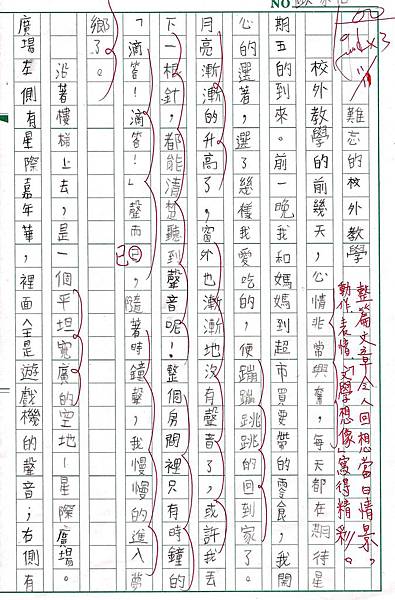 NO
難忘的校外教學
整篇文章令人回想當日情景，
動作、表情、文學想像，寫得精彩。
校外教學的前幾天，心情非常興奮，每天都在期待星
期五的到來。前一晚我和媽媽到超市買要帶的零食，我開
心的選著，選了幾樣我愛吃的，便蹦蹦跳跳的回到家了。
月亮漸漸的升高了，窗外也漸漸地沒有聲音了，或許我丟
下一根針，都能清楚聽到聲音呢！整個房間裡只有時鐘的
「滴答！滴答！」聲而已，隨著時鐘聲，我慢慢的進入夢
鄉了。
沿著樓梯上去，是一個平坦寬廣的空地—星際廣場。
廣場左側有星際嘉年華，裡面全是遊戲機的聲音；右側有